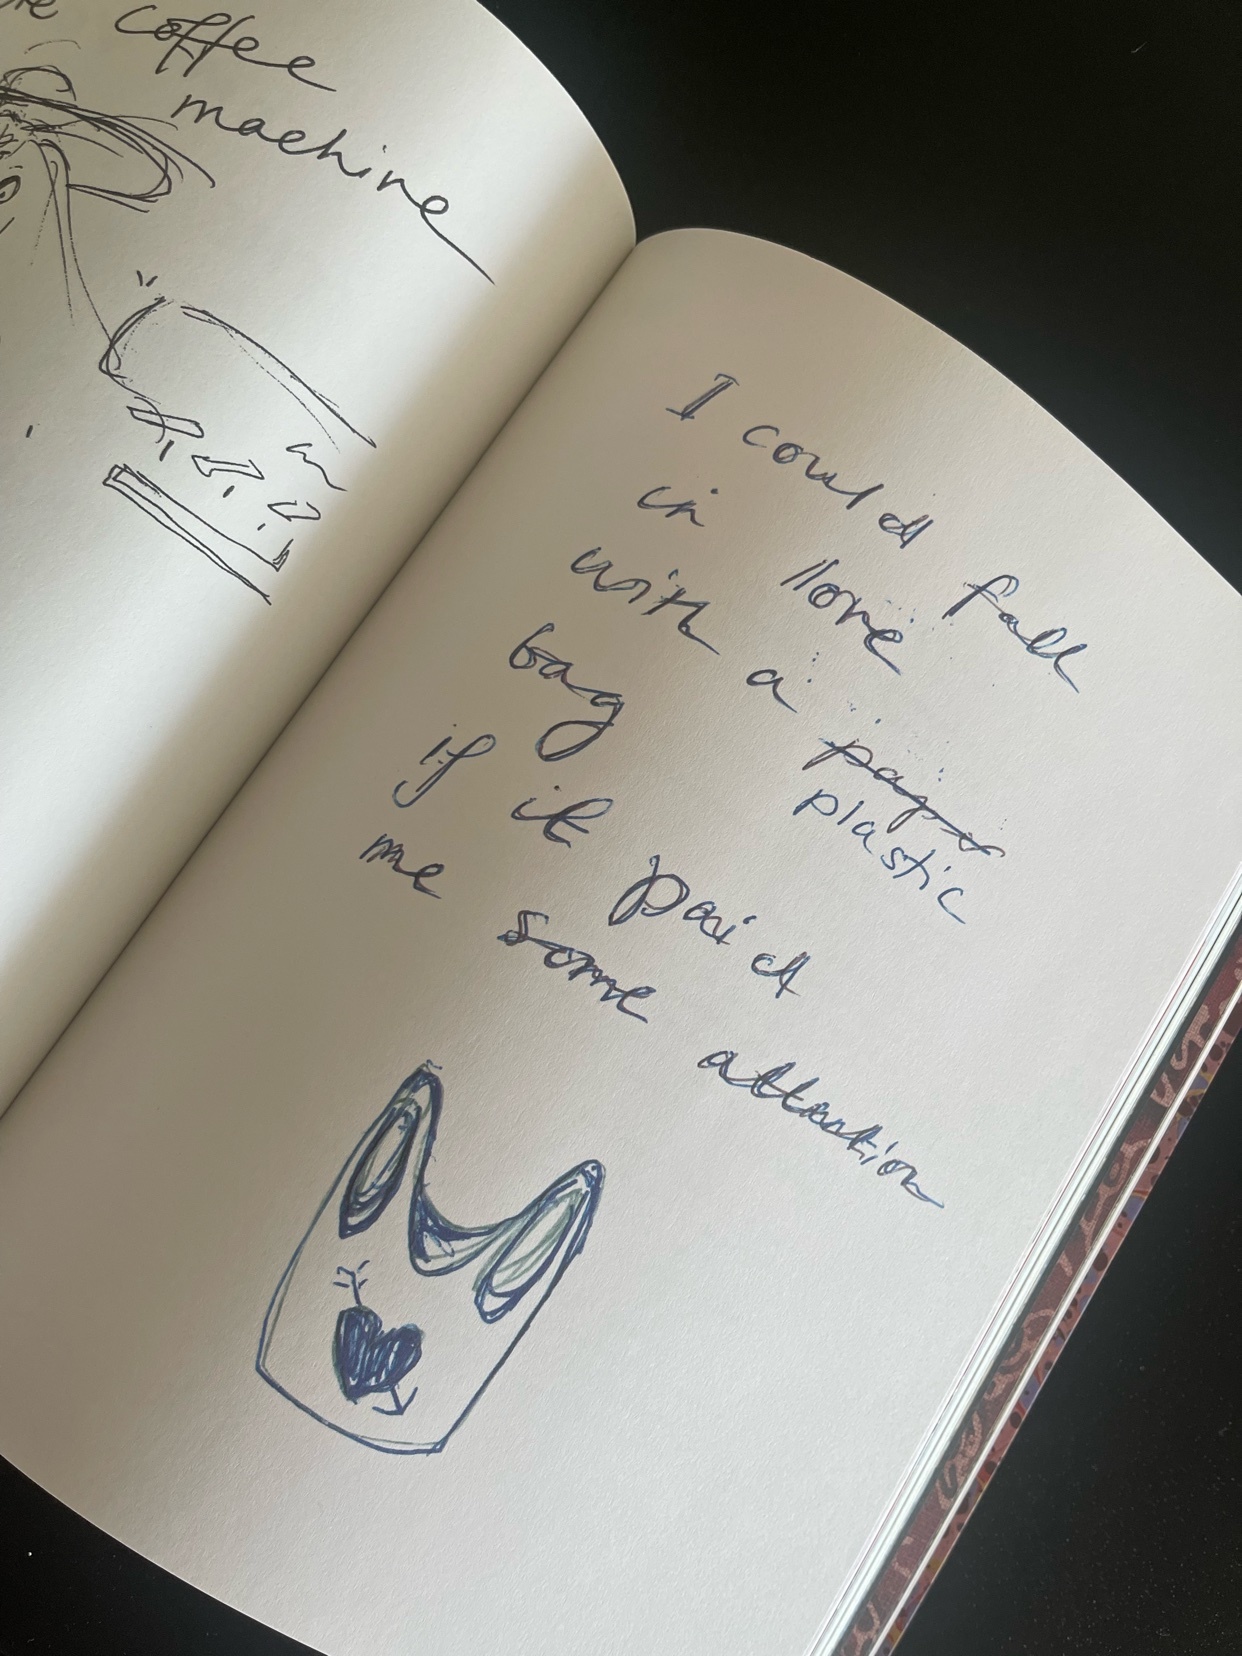 coffee
machine
I could fall
in love
with a paper
plastic
bag
if it paid
me some attention